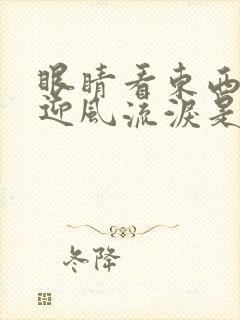 眼睛看東西
迎风流淚是
冬降